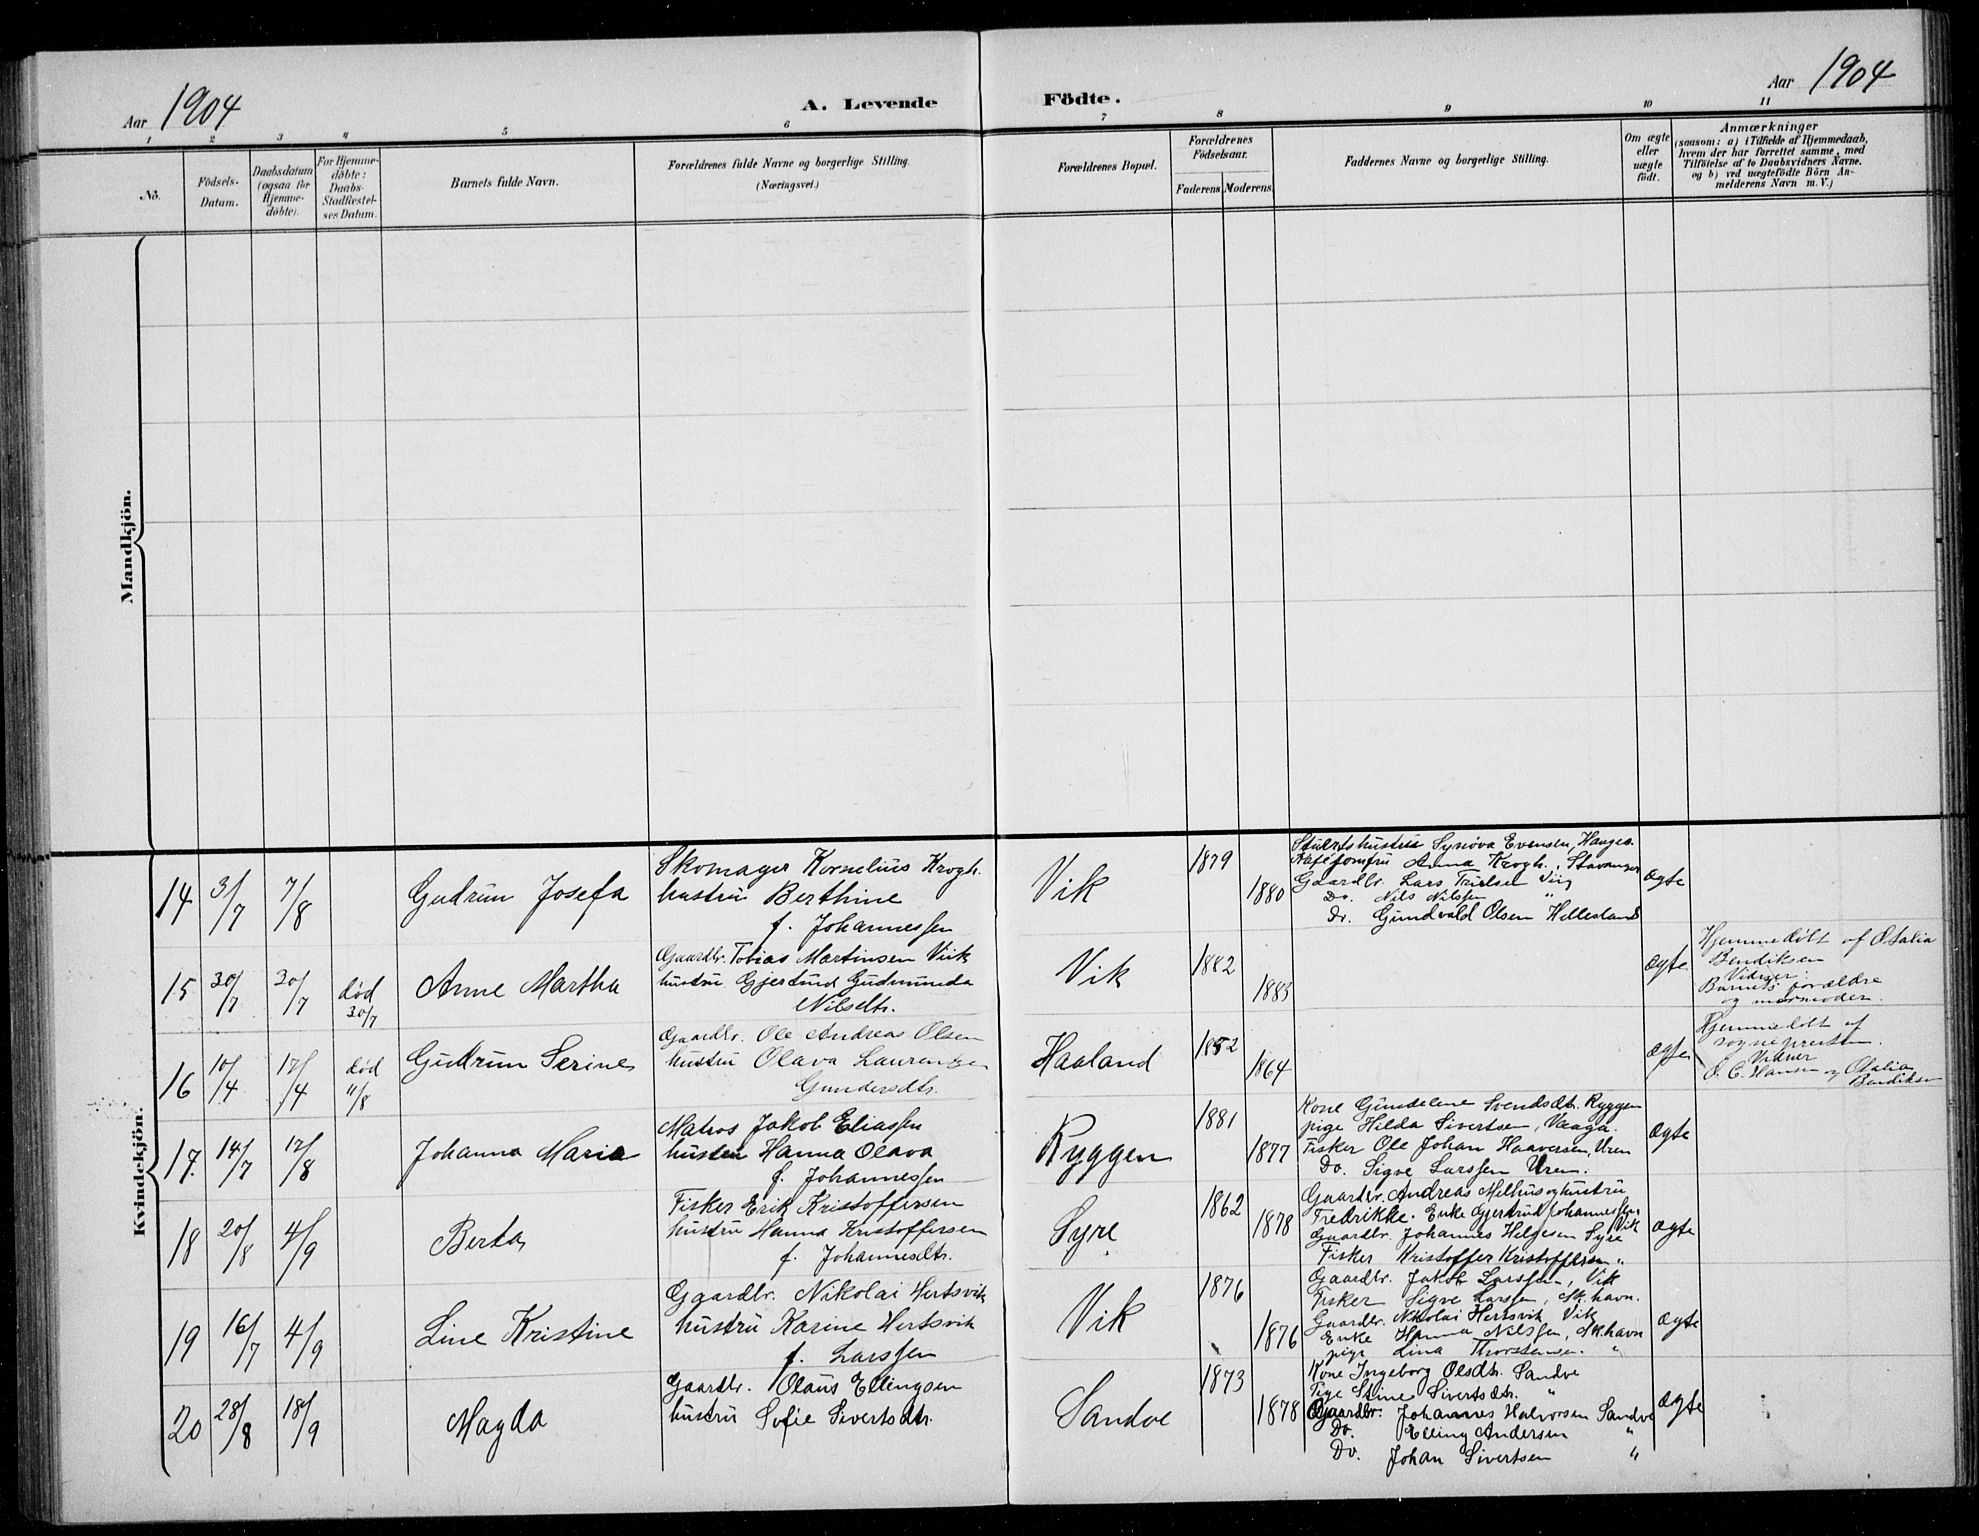 Aar 1904
A. Levende
Födte.
Aar 1904
1 2 3 4 5 6 7 8 9 10 11
No.
Födsels-
Datum.
Daabsdatum
(ogsaa for
Hjemme-
döbte).
For Hjemme-
döbte:
Daabs-
Stadfæstel-
ses Datum.
Barnets fulde Navn.
Forældrenes fulde Navne og borgerlige Stilling.
(Næringsvei.)
Forældrenes Bopæl.
Forældrenes
Födselsaar.
Faderens. Moderens.
Faddernes Navne og borgerlige Stilling.
Om ægte
eller
uægte
födt.
Anmærkninger
(saasom: a) i Tilfælde af Hjemmedaab,
hvem der har forrettet samme, med
Tilföielse af to Daabsvidners Navne.
og b) ved uægtefödte Börn An-
melderens Navn m. V.)
Mandkjön.
Kvindekjön.
14 3/7 7/8 Gudrun Josefa
Skomager Kornelius Krogh.
hustru Berthine
f. Johannessen
Vik 1879 1880
Synöva Evensen, Hauges.
Anna Krogh, Stavanger
Gaardbr. Lars
Do. Nils Nilssen "
Do. Gundvald Olsen Hillesland
ægte
15 30/7 30/7 död 30/7 Anne Martha
Gaardbr. Tobias Martinsen Viik
hustru Gjertrud Gudmunda
Nilsdtr.
Vik 1882 1883
ægte
Hjemmedöbt af Otalia
Bendiksen
Vidner:
Barnets forældre
og mormoder.
16 10/4 17/4 död 11/8 Gudrun Serine
Gaardbr. Ole Andreas Olsen
hustru Olava
Gundersdtr.
Haaland 1852 1864
ægte
Hjemmedöbt af
sognepresten.
Vidner
O. C. Hansen og Otalia
Bendiksen
17. 14/7 17/8 Johanna Maria
Matros Jakob Eliassen
hustru Hanna Olava
f. Johannessen
Ryggen 1881 1877
Kone Gundelene Svendsdtr. Ryggen
pige Hilda Sivertsen, Vaaga.
Fisker Ole Johan Haaversen, Uren
Do. Sigve Larssen Uren.
ægte
18 20/8 4/9 Berta
Fisker Erik Kristoffersen
hustru Hanna Kristoffersen
f. Johannesdtr.
Syre 1862 1878
Gaardbr. Andreas Melhus og hustru
Fredrikke. Enke Gjertrud Johannessen, Vik
Gaardbr. Johannes Helgesen Syre
Fisker Kristoffer Kristoffersen "
ægte
19 16/7 4/9 Line Kristine
Gaardbr. Nikolai Hertsvik
hustru Karine Hertsvik
f. Larssen
Vik 1876 1876
Gaardbr. Jakob Larssen, Vik
Fisker Sigve Larssen, Sk.havn.
Gaardbr. Nikolai Hertsvik Vik
Enke Hanna Nilssen, Sk.havn
pige Lina Thorstensen. "
ægte
20 28/8 18/9 Magda
Gaardbr. Olaus Ellingsen
hustru Sofie Sivertsdtr.
Sandve 1873 1878
Kone Ingeborg Olsdtr. Sandve
Pige Stine Sivertsdtr. "
Gaardbr. Johannes Halvorsen Sandve
Do. Elling Andersen "
Do. Johan Sivertsen "
ægte